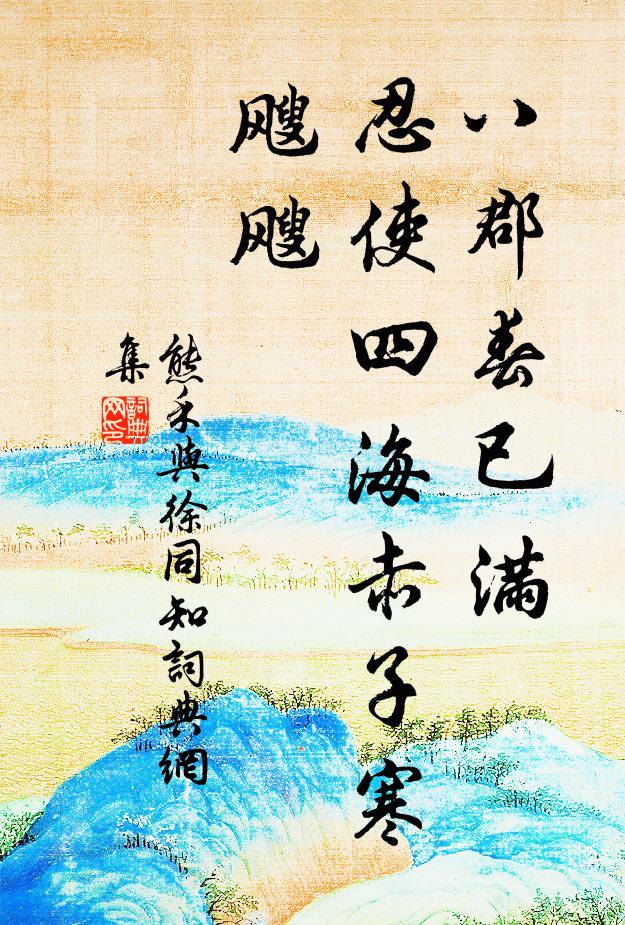 八郡春已满
忍使四海赤子寒
飕飕
熊禾與徐同知詞典網
集
詞典網印